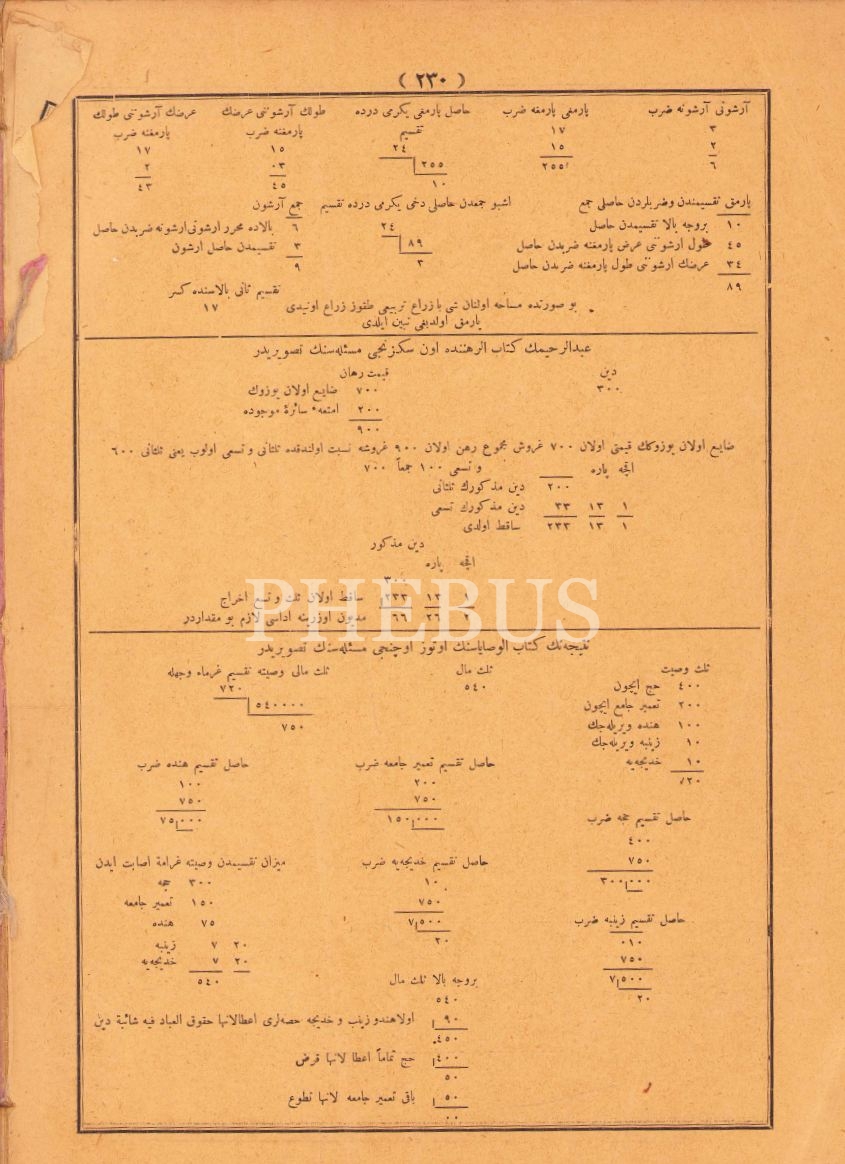 ( ٢٣٠ )
آرشونی آرشونه ضرب
٣
٢
٦
پارمغی پارمغه ضرب
١٧
١٥
٢٥٥
حاصل پارمغی یكرمی درده تقسیم
٢٤
٢٥٥
١٠
طولك آرشوننی عرضك پارمغنه ضرب
١٥
٠٣
٤٥
عرضك آرشوننی طولك پارمغنه ضرب
١٧
٢
٤٣
پارمق تقسیمندن وضربلردن حاصلی جمع
١٠ بروجه بالا تقسیمدن حاصل
٤٥ طول ارشوننی عرض پارمغنه ضربدن حاصل
٣٤ عرضك ارشوننی طول پارمغنه ضربدن حاصل
٨٩
اشبو جمعدن حاصلی دخی یكرمی درده تقسیم
٢٤
٨٩
٣
جمع آرشون
٦ بالاده محرر ارشونی ارشونه ضربدن حاصل
٣ تقسیمدن حاصل ارشون
٩
تقسیم ثانی بالاسنده كسر
١٧
بو صورتده مساحه اولنان شی با زراع تربیعی طقوز زراع اونیدی
پارمق اولدیغی تبین ایلدی
عبدالرحیمك كتاب الرهننده اون سكزنجی مسئله‌سنك تصویریدر
دین
٣٠٠
قیمت رهان
٧٠٠ ضایع اولان یوزوك
٢٠٠ امتعهٔ سائرهٔ موجوده
٩٠٠
ضایع اولان یوزوكك قیمتی اولان ٧٠٠ غروش مجموع رهن اولان ٩٠٠ غروشه نسبت اولندقده ثلثانی و تسعی اولوب یعنی ثلثانی ٦٠٠
و تسعی ١٠٠ جمعاً ٧٠٠
اقچه پاره
٢٠٠ دین مذكورك ثلثانی
١ ١٣ ٣٣ دین مذكورك تسعی
١ ١٣ ٢٣٣ ساقط اولدی
دین مذكور
اقچه پاره
٣٠٠
١ ١٣ ٢٣٣ ساقط اولان ثلث و تسع اخراج
٢ ٢٦ ٦٦ مدیون اوزرینه اداسی لازم بو مقداردر
PHEBUS
نتیجه‌نك كتاب الوصایاسنك اوتوز اوچنجی مسئله‌سنك تصویریدر
ثلث وصیت
٤٠٠ حج ایچون
٢٠٠ تعمیر جامع ایچون
١٠٠ هنده ویریله‌جك
١٠ زینبه ویریله‌جك
١٠ خدیجه‌یه
٧٢٠
ثلث مال
٥٤٠
ثلث مالی وصیته تقسیم غرماء وجهله
٧٢٠
٥٤٠٠٠٠
٧٥٠
حاصل تقسیم حجه ضرب
٤٠٠
٧٥٠
٣٠٠٠٠٠
حاصل تقسیم تعمیر جامعه ضرب
٢٠٠
٧٥٠
١٥٠٠٠٠
حاصل تقسیم هنده ضرب
١٠٠
٧٥٠
٧٥٠٠٠
حاصل تقسیم زینبه ضرب
٠١٠
٧٥٠
٧٥٠٠
٢٠
حاصل تقسیم خدیجه‌یه ضرب
١٠
٧٥٠
٧٥٠٠
٢٠
میزان تقسیمدن وصیته غرامة اصابت ایدن
٣٠٠ حجه
١٥٠ تعمیر جامعه
٧٥ هنده
٢٠ ٧ زینبه
٢٠ ٧ خدیجه‌یه
٥٤٠
بروجه بالا ثلث مال
٥٤٠
٩٠ اولا هند و زینب و خدیجه حصه‌لری اعطا لانها حقوق العباد فیه شائبة دین
٤٥٠
٤٠٠ حج تماماً اعطا لانها قرض
٥٠
٥٠ باقی تعمیر جامعه لانها تطوع
٠٠